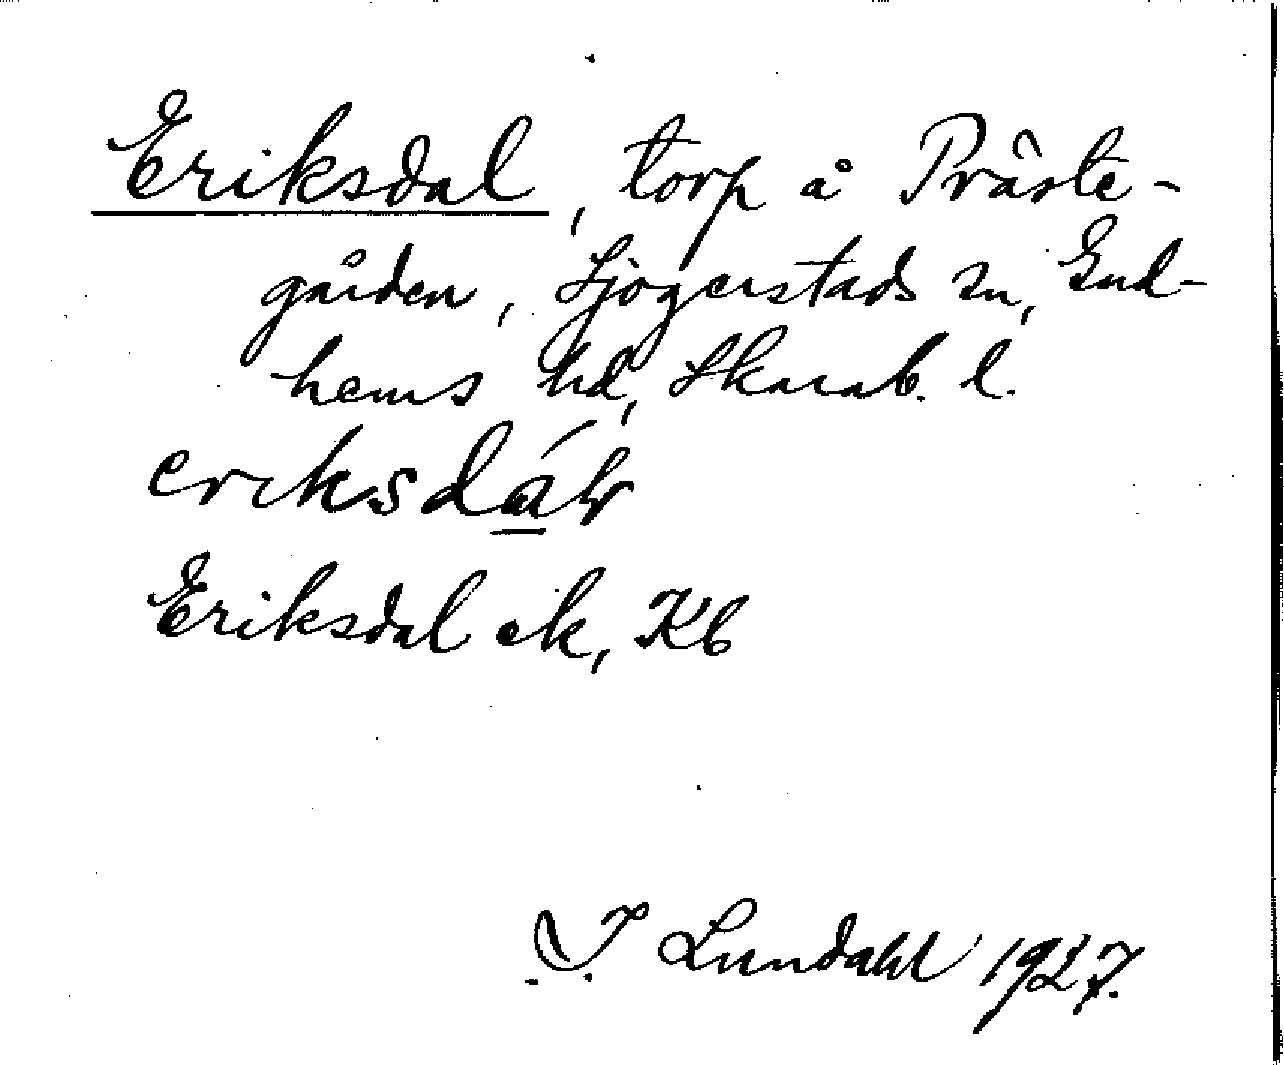 Eriksdal, torp å Präste-
gården, Sjogerstads sn, Gud-
hems hd, Skarab. l.
eriksdál
Eriksdal ek, Kb
I Lundahl 1927.